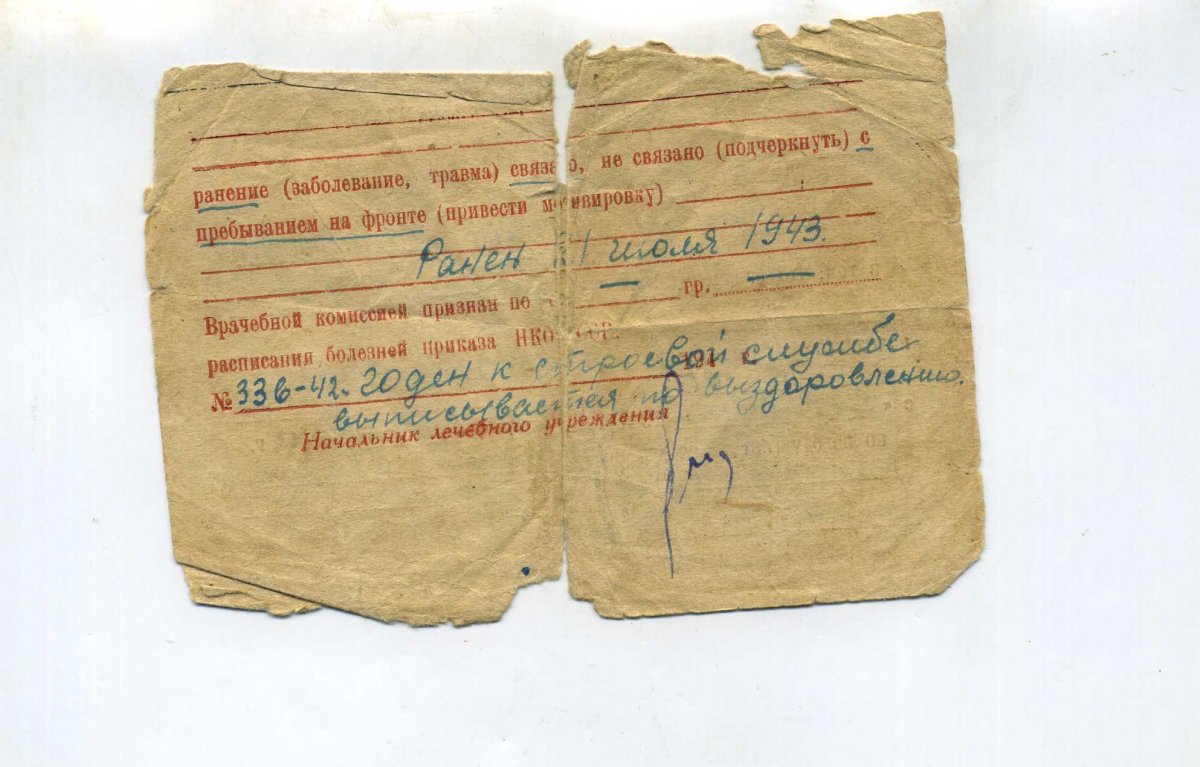 ранение (заболевание, травма) связано, не связано (подчеркнуть) с
пребыванием на фронте (привести мотивировку)
Ранен 1 июля 1943.
Врачебной комиссией признан по гр.
расписания болезней приказа НКО СССР
№ 336-42. годен к строевой службе 194
выписывается по выздоровлению.
Начальник лечебного учреждения